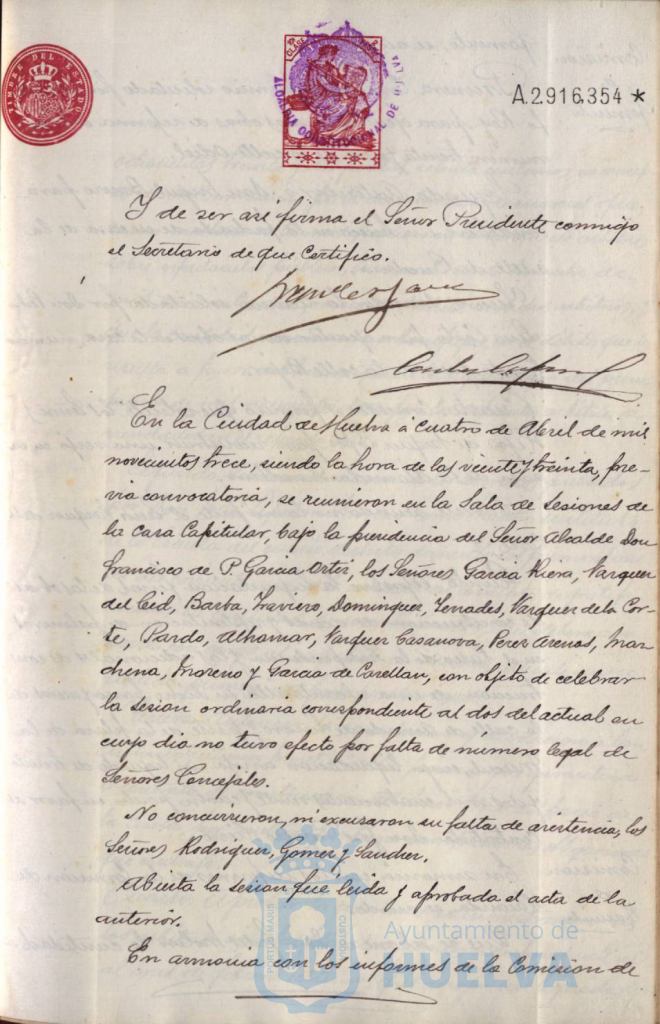 TIMBRE DEL ESTADO
CLASE
ALCALDIA CONSTITUCIONAL DE HUELVA
A.2.916,354 *
Y de ser así firma el Señor Presidente conmigo
el Secretario de que certifico.
En la Ciudad de Huelva á cuatro de Abril de mil
novecientos trece, siendo la hora de las veinte y treinta, pre-
via convocatoria, se reunieron en la Sala de Sesiones de
la casa Capitular, bajo la presidencia del Señor Alcalde Don
Francisco de P. Garcia Ortiz, los Señores Garcia Riera, Vazquez
del Cid, Barba, Traviero, Dominguez, Terrades, Vazquez de la Cor-
te, Pardo, Alhamar, Vazquez Casanova, Perez Arenas, Mar-
chena, Moreno y Garcia de Castellan, con objeto de celebrar
la sesion ordinaria correspondiente al dos del actual en
cuyo dia no tuvo efecto por falta de número legal de
Señores Concejales.
No concurrieron, ni excusaron su falta de asistencia, los
Señores Rodriguez, Gomez y Sanchez.
Abierta la sesion fué leida y aprobada el acta de la
anterior.
En armonia con los informes de la Comision de
PORTUS MARIS
Ayuntamiento de
HUELVA